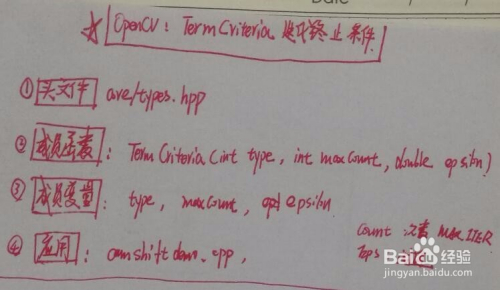 Date
☆ OpenCV: TermCriteria 迭代终止条件
① 头文件 core/types.hpp
② 成员函数: TermCriteria(int type, int maxCount, double epsilon)
③ 成员变量: type, maxCount, and epsilon
④ 应用: camshiftdemo.cpp,
Count 次数 MAX_ITER
Teps
Baidu 经验
jingyan.baidu.com